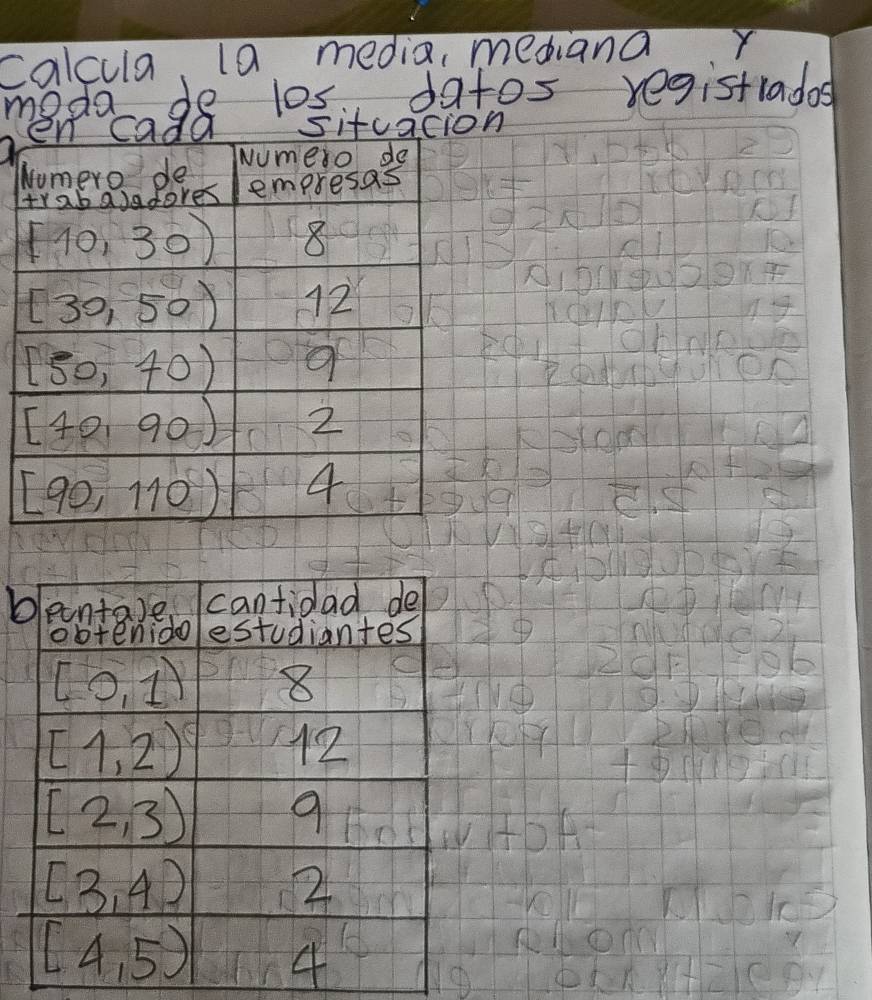 calcula la media, mediana y
moda de los datos registrados
en cada situacion
a Numero de trabajadores Numero de empresas
[10, 30) 8
[30, 50) 12
[50, 70) 9
[70, 90) 2
[90, 110) 4
b puntaje obtenido cantidad de estudiantes
[0, 1) 8
[1, 2) 12
[2, 3) 9
[3, 4) 2
[4, 5) 4